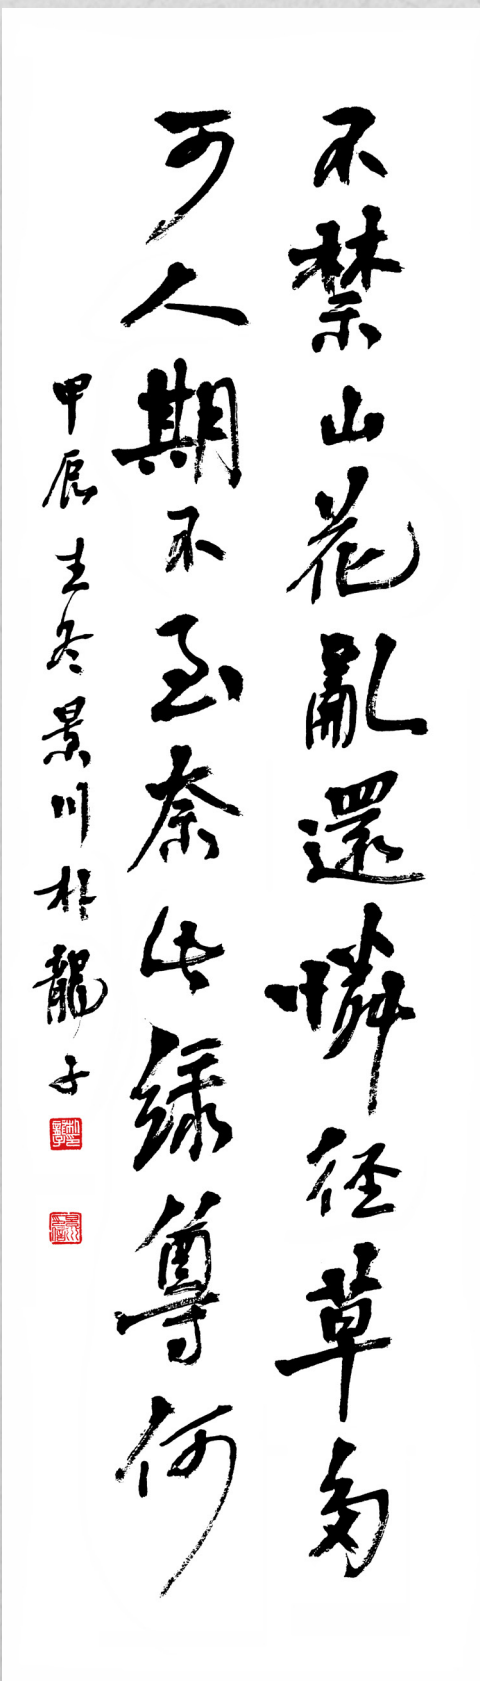 不禁山花亂還憐徑草多
可人期不至奈此綠尊何
甲辰立冬景川朴龍子